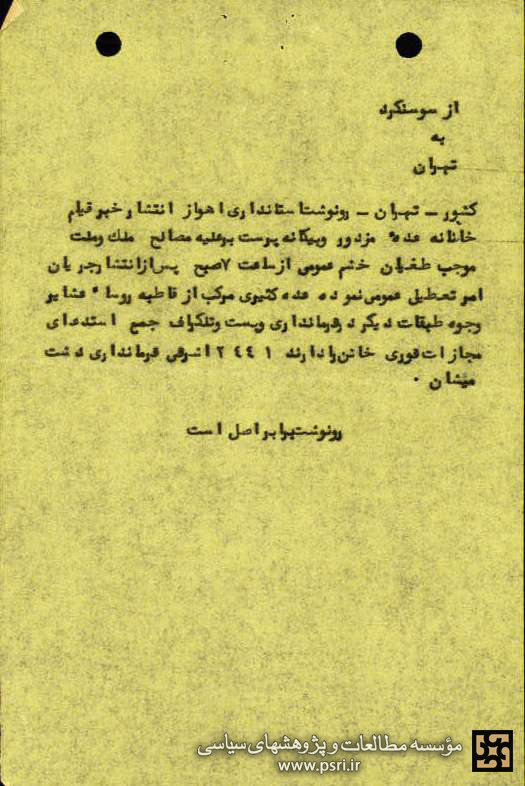 از سوسنگرد
به
تهران
کشور ــ تهران ــ رونوشت استانداری اهواز انتشار خبر قیام
خائنانه عده مزدور وبیگانه پرست برعلیه مصالح ملک وملت
موجب طغیان خشم عمومی از ساعت ۷ صبح پس ازانتشار جریان
امر تعطیل عمومی نموده عده کثیری مرکب از قاطبه روسا ء عشایر
وجوه طبقات دیگر درفرمانداری وپست وتلگراف جمع استدعای
مجازات فوری خائنن رادارند ۲۴۴۱ اشرفی فرمانداری دشت
میشان ۰
رونوشت برابر اصل است
مؤسسه مطالعات و پژوهشهای سیاسی
www.psri.ir